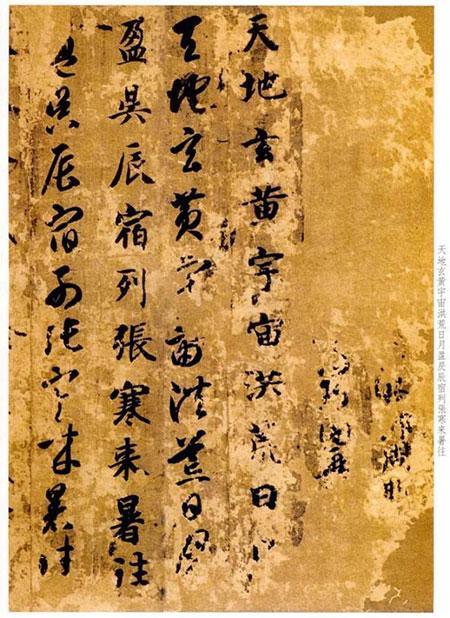 天地玄黃宇宙洪荒日月盈昃辰宿列張寒来暑往
天地玄黃宇宙洪荒日月
天地玄黃宇宙洪荒日月
盈昃辰宿列張寒来暑往
盈昃辰宿列張寒来暑往